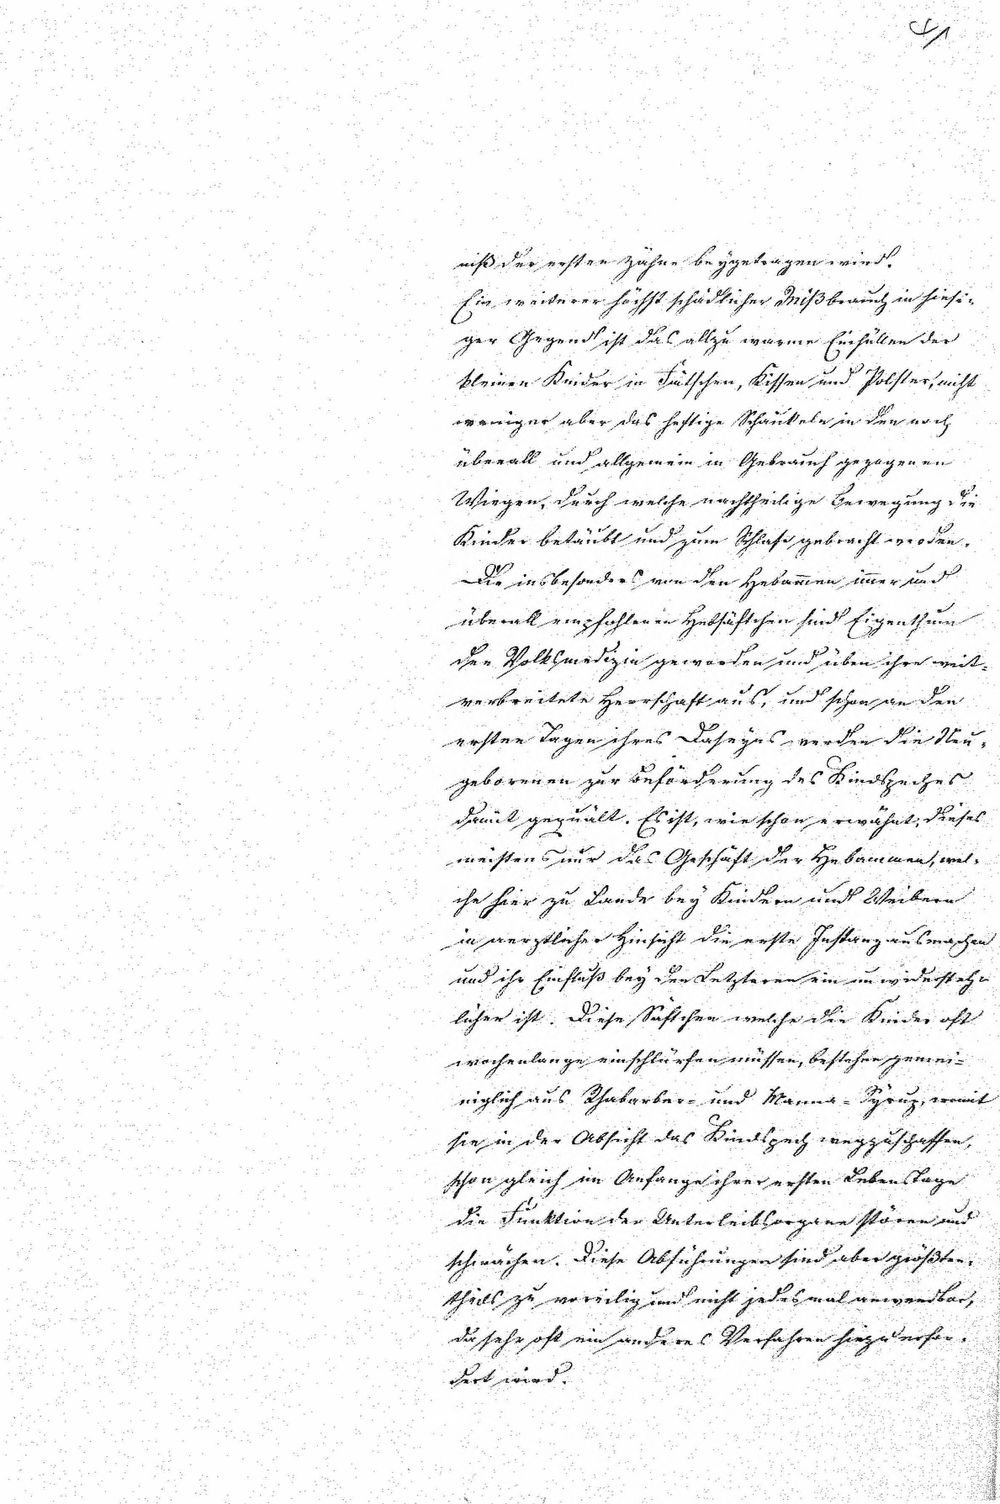 niß der ersten Zähne beygetragen wird.
Ein weiterer höchst schädlicher Mißbrauch in hiesi-
ger Gegend ist das allzu warme Einhüllen der
kleinen Kinder in Fatschen, Kissen und Polster, nicht
weniger aber das heftige Schaukeln in den noch
überall und allgemein in Gebrauch gezogenen
Wiegen, durch welche nachtheilige Bewegung die
Kinder betäubt und zum Schlafe gebracht werden.
Die insbesonders von den Hebammen immer und
überall empfohlenen Hebsäftchen sind Eigenthum
der Volksmedizin geworden und üben ihre weit-
verbreitete Herrschaft aus, und schon an den
ersten Tagen ihres Daseyns werden die Neu-
geborenen zur Beförderung des Kindspeches
damit gequält. Es ist, wie schon erwähnt, dieses
meistens nur das Geschäft der Hebammen, wel-
che hier zu Lande bey Kindern und Weibern
in aerztlicher Hinsicht die erste Instanz ausmachen
und ihr Einfluß bey den Letzteren ein unwidersteh-
licher ist. Diese Säftchen welche die Kinder oft
wochenlange einschlürfen müssen, bestehen gemei-
niglich aus Rhabarber- und Manna-Syrup, womit
sie in der Absicht das Kindspech wegzuschaffen,
schon gleich im Anfange ihrer ersten Lebenstage
die Funktion der Unterleibsorgane stören und
schwächen. Diese Abführungen sind aber größten-
theils zu voreilig und nicht jedesmal anwendbar,
da sehr oft ein anderes Verfahren hiezu erfor-
dert wird.